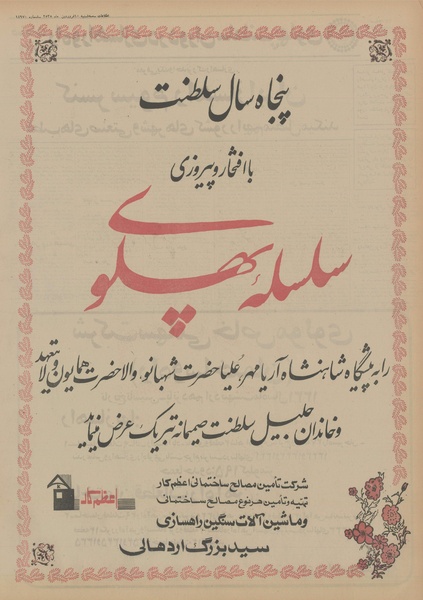 پنجاه سال سلطنت
با افتخار و پیروزی
سلسلهٔ پهلوی
را به پیشگاه شاهنشاه آریامهر، علیا حضرت شهبانو، والا حضرت همایون ولایتعهد
و خاندان جلیل سلطنت صمیمانه تبریک عرض مینماید
شرکت تامین مصالح ساختمانی اعظم کار
تهیه و تامین هر نوع مصالح ساختمانی
و ماشین آلات سنگین راهسازی
سید بزرگ اردهالی
اعظم کار